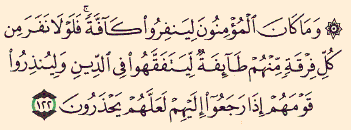 ۞ وَمَا كَانَ ٱلْمُؤْمِنُونَ لِيَنفِرُوا۟ كَآفَّةً ۚ فَلَوْلَا نَفَرَ مِن
كُلِّ فِرْقَةٍ مِّنْهُمْ طَآئِفَةٌ لِّيَتَفَقَّهُوا۟ فِى ٱلدِّينِ وَلِيُنذِرُوا۟
قَوْمَهُمْ إِذَا رَجَعُوٓا۟ إِلَيْهِمْ لَعَلَّهُمْ يَحْذَرُونَ ١٢٢